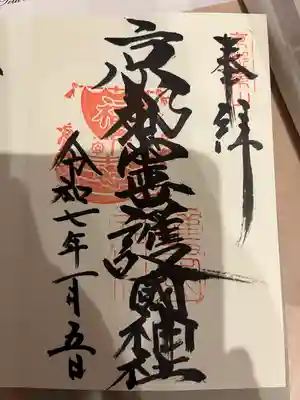 奉拝
京都霊護國神社
令和七年一月五日